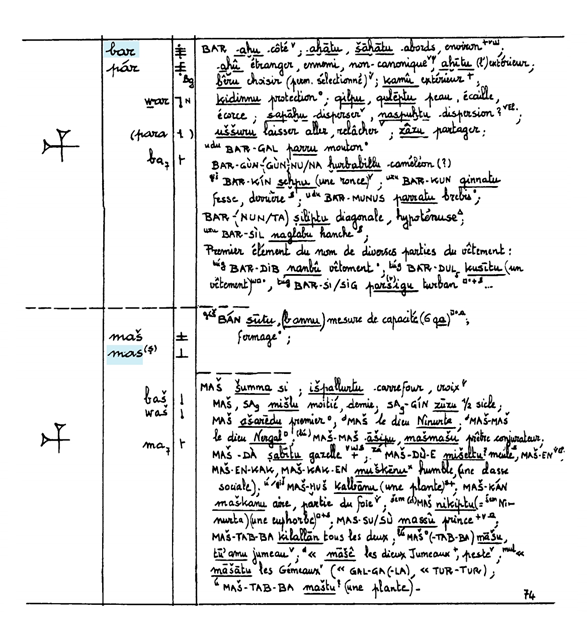 bar BAR ahu côté ; ahātu, šāhātu abords, environ
pár ahû étranger, ennemi, non-canonique ; ahītu (l')extérieur ;
bêru choisir (perm. sélectionné) ; kamû extérieur ,
war kidinnu protection ; qilpu, qulēptu peau, écaille,
écorce ; sapāhu disperser , naspuhtu dispersion ?
(para) uššuru laisser aller, relâcher ; zâzu partager ;
ba₇ udu BAR-GAL parru mouton
BAR-GÙN-(GÙN)NU/NA hurbabillu caméléon (?)
gi BAR-KÍN sehpu (une ronce) ; uzu BAR-KUN qinnatu
fesse, derrière ; udu BAR-MUNUS parratu brebis ;
BAR-(NUN/TA) ṣiliptu diagonale, hypoténuse ;
uzu BAR-SÌL naglabu hanche ;
Premier élément du nom de diverses parties du vêtement :
túg BAR-DIB nanbû vêtement , túg BAR-DUL kusītu (un
vêtement) , túg BAR-SI/SIG parsigu turban ...
giš BÁN sūtu, (bannu) mesure de capacité (6 qa) ,
maš fromage ;
mas(ṣ)
MAŠ šumma si ; išpallurtu carrefour, croix
baš MAŠ, SA₉ mišlu moitié, demie, SA₉-GÍN zūzu ½ sicle ;
waš MAŠ ašarēdu premier , d MAŠ le dieu Ninurta , d MAŠ-MAŠ
le dieu Nergal ; (lú) MAŠ-MAŠ āšipu, mašmašu prêtre conjurateur,
ma₇ MAŠ-DÀ ṣabītu gazelle , za MAŠ-DÙ-E mišeltu? meule, MAŠ-EN
MAŠ-EN-KAK, MAŠ-KAK-EN muškēnu humble, (une classe
sociale) ; MAŠ-HUŠ kalbānu (une plante) , MAŠ-KÁN
maškanu aire, partie du foie , šim (d) MAŠ nikiptu (= šim Ni-
nurta) (une euphorbe) ; MAS-SU/SÙ massû prince
MAŠ-TAB-BA kilallān tous les deux ; MAŠ (-TAB-BA) māšu,
tū'amu jumeau , d « māšē les dieux Jumeaux , peste , mul «
māšātu les Gémeaux (« GAL-GA(-LA), « TUR-TUR) ;
ú MAŠ-TAB-BA maštu? (une plante) -
74